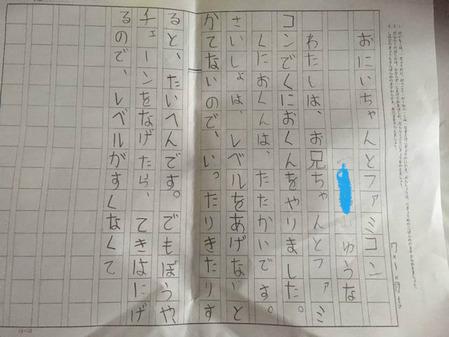 おにいちゃんとファミコン
ゆうな
わたしは、お兄ちゃんとファミ
コンでくにおくんをやりました。
くにおくんは、たたかいです。
さいしょは、レベルをあげないと
かてないので、いったりきたりす
ると、たいへんです。でもぼうや
チェーンをなげたら、てきはにげ
るので、レベルがすくなくて